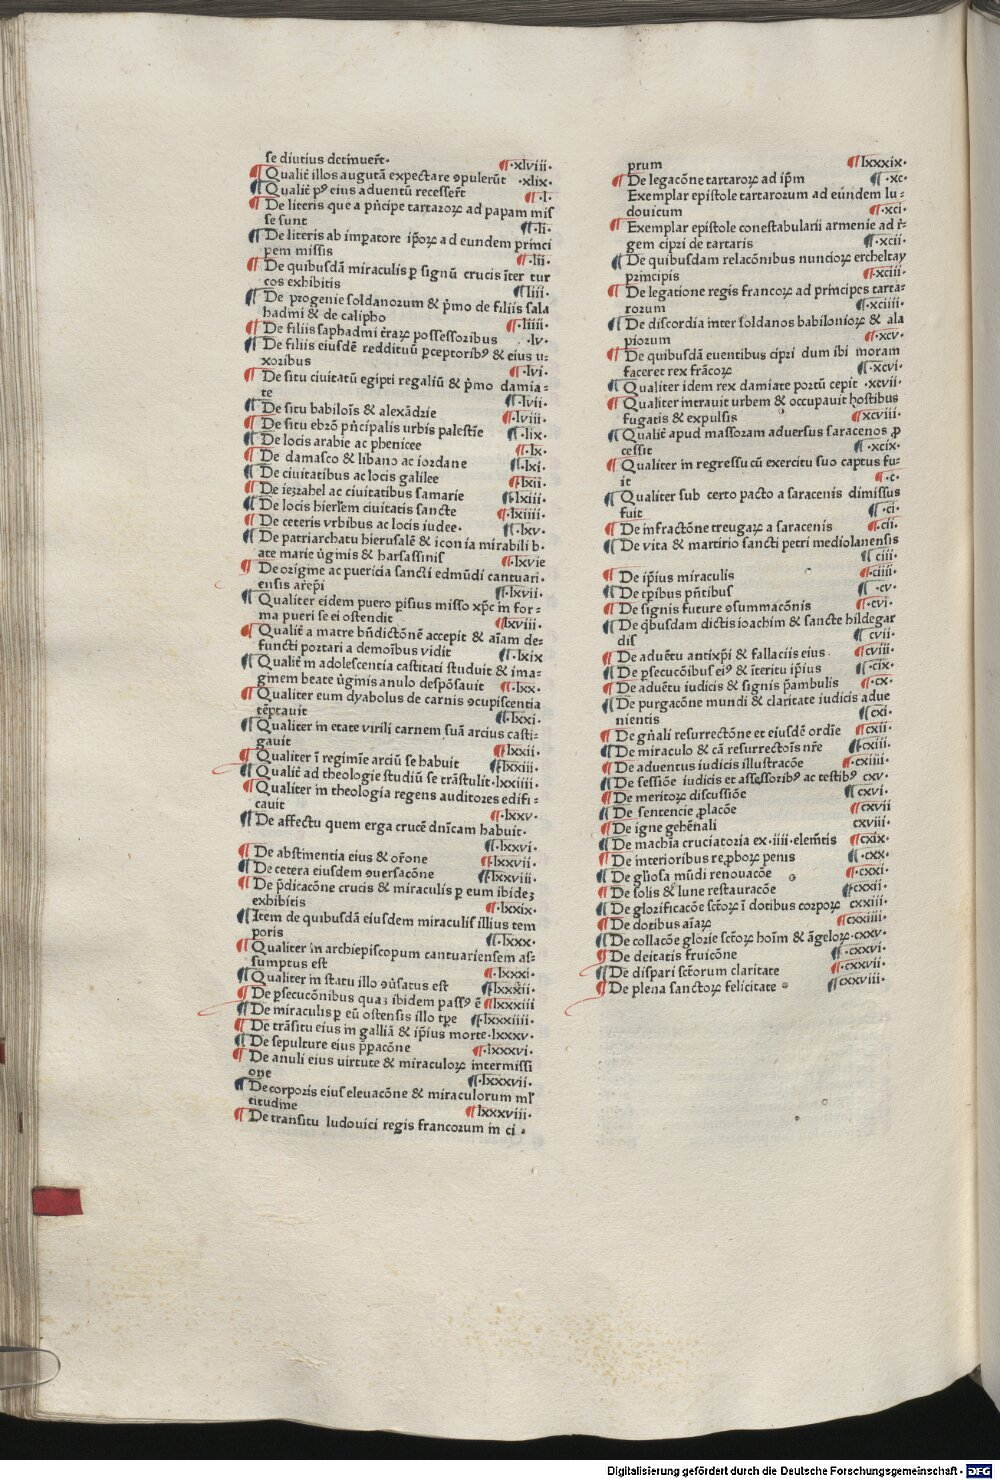 se diutius detinuer̃t·
¶·xlviii·
¶Qualit̃ illos augutã expectare ꝯpulerũt ·xlix·
¶Qualit̃ pꝰ eius aduentũ recesser̃t ¶·l·
¶De literis que a pñcipe tartaroꝝ ad papam mis
se sunt ¶·li·
¶De literis ab impatore ip̃oꝝ ad eundem princi
pem missis ¶·lii·
¶De quibusdã miraculis p̱ signũ crucis ĩter tur
cos exhibitis ¶liii·
¶De progenie soldanorum & p̃mo de filiis sala
hadini & de calipho ¶·liiii·
¶De filiis saphadini t̃raꝝ possessoribus ·lv·
¶De filiis eiusdẽ reddituũ p̱ceptoribꝰ & eius u-
xoribus ¶·lvi·
¶De situ ciuitatũ egipti regaliũ & p̃mo damia-
te ¶·lvii·
¶De situ babilõis & alexãdrie ¶·lviii·
¶De situ ebrõ pñcipalis urbis palestĩe ¶·lix·
¶De locis arabie ac phenicee ¶·lx·
¶De damasco & libano ac iordane ¶·lxi·
¶De ciuitatibus ac locis galilee ¶lxii·
¶De iezrahel ac ciuitatibus samarie ¶·lxiii·
¶De locis hierl̃em ciuitatis sancte ¶·lxiiii·
¶De ceteris vrbibus ac locis iudee· ¶·lxv·
¶De patriarchatu hierusalẽ & iconia mirabili b·
ate marie ũginis & harsassinis ¶·lxvie
¶De origine ac puericia sancti edmũdi cantuari·
ensis ar̃ep̃i ¶·lxvii·
¶Qualiter eidem puero p̱isius misso xp̃c in for-
ma pueri se ei ostendit ¶lxviii·
¶Qualit̃ a matre bñdictõnẽ accepit & aĩam de-
functi portari a demoĩbus vidit ¶·lxix
¶Qualit̃ in adolescentia castitati studuit & ima-
ginem beate ũginis anulo despõsauit ¶·lxx·
¶Qualiter eum dyabolus de carnis ꝯcupiscentia
tẽptauit ¶·lxxi·
¶Qualiter in etate virili carnem suã arcius casti-
gauit ¶lxxii·
¶Qualiter ĩ regimĩe arciũ se habuit ¶·lxxiii·
¶Qualit̃ ad theologie studiũ se trãstulit·lxxiiii·
¶Qualiter in theologia regens auditores edifi-
cauit ¶·lxxv·
¶De affectu quem erga crucẽ dñicam habuit·
¶·lxxvi·
¶De abstinentia eius & or̃one ¶·lxxvii·
¶De cetera eiusdem ꝯuersacõne ¶·lxxviii·
¶De p̃dicacõne crucis & miraculis p̱ eum ibidez
exhibitis ¶·lxxix·
¶Item de quibusdã eiusdem miraculis illius tem
poris ¶·lxxx·
¶Qualiter in archiepiscopum cantuariensem as-
sumptus est ¶·lxxxi·
¶Qualiter in statu illo ꝯũsatus est ¶lxxxii·
¶De p̱secucõnibus quaz ibidem passꝰ ẽ ¶lxxxiii
¶De miraculis p̱ eũ ostensis illo tp̱e ¶·lxxxiiii·
¶De trãsitu eius in galliã & ip̃ius morte·lxxxv·
¶De sepulture eius p̃p̱acõne ¶·lxxxvi·
¶De anuli eius uirtute & miraculoꝝ intermissi
one ¶·lxxxvii·
¶De corporis eius eleuacõne & miraculorum ml̃
titudine ¶lxxxviii·
¶De transitu ludouici regis francorum in ci-
prum ¶lxxxix·
¶De legacõne tartaroꝝ ad ip̃m ¶·xc·
Exemplar epistole tartarorum ad eũndem lu-
douicum ¶·xci·
¶Exemplar epistole conestabularii armenie ad r̃-
gem cipri de tartaris ¶·xcii·
¶De quibusdam relacõnibus nuncioꝝ ercheltay
principis ¶·xciii·
¶De legatione regis francoꝝ ad principes tarta-
rorum ¶·xciiii·
¶De discordia inter soldanos babilonioꝝ & ala
piorum ¶·xcv·
¶De quibusdã euentibus cipri dum ibi moram
faceret rex frãcoꝝ ¶·xcvi·
¶Qualiter idem rex damiate portũ cepit ·xcvii·
¶Qualiter intrauit urbem & occupauit hostibus
fugatis & expulsis ¶xcviii·
¶Qualit̃ apud massoram aduersus saracenos ꝓ
cessit ¶·xcix·
¶Qualiter in regressu cũ exercitu suo captus fu-
it ¶·c·
¶Qualiter sub certo pacto a saracenis dimissus
fuit ¶·ci·
¶De infractõne treugaꝝ a saracenis ¶·cii·
¶De vita & martirio sancti petri mediolanensis
¶ciii·
¶De ip̃ius miraculis ¶·ciiii·
¶De tp̱ibus pñtibus ¶·cv·
¶De signis future ꝯsummacõnis ¶·cvi·
¶De q̃busdam dictis ioachim & sancte hildegar
dis ¶cvii·
¶De aduẽtu antixp̃i & fallaciis eius· ¶cviii·
¶De p̱secucõibus eiꝰ & ĩteritu ip̃ius ¶·cix·
¶De aduẽtu iudicis & signis p̃ambulis ¶·cx·
¶De purgacõne mundi & claritate iudicis adue
nientis ¶cxi·
¶De gñali resurrectõne et eiusdẽ ordĩe ¶cxii·
¶De miraculo & cã resurrectõis nr̃e ¶·cxiii·
¶De aduentus iudicis illustracõe ¶·cxiiii·
¶De sessiõe iudicis et assessoribꝰ ac testibꝰ cxv·
¶De meritoꝝ discussiõe ¶cxvi·
¶De sentencie ꝓlacõe ¶cxvii
¶De igne gehẽnali cxviii·
¶De machĩa cruciatoria ex·iiii·elem̃tis ¶cxix·
¶De interioribus reꝓboꝝ penis ¶·cxx·
¶De gl̃iosa mũdi renouacõe ¶·cxxi·
¶De solis & lune restauracõe ¶cxxii·
¶De glorificacõe sc̃toꝝ ĩ dotibus corporꝝ cxxiii·
¶De dotibus aĩaꝝ ¶cxxiiii·
¶De collacõe glorie sc̃toꝝ hoĩm & ãgeloꝝ·cxxv·
¶De deitatis fruicõne ¶·cxxvi·
¶De dispari sc̃torum claritate ¶·cxxvii·
¶De plena sanctoꝝ felicitate ¶cxxviii·
Digitalisierung gefördert durch die Deutsche Forschungsgemeinschaft - DFG